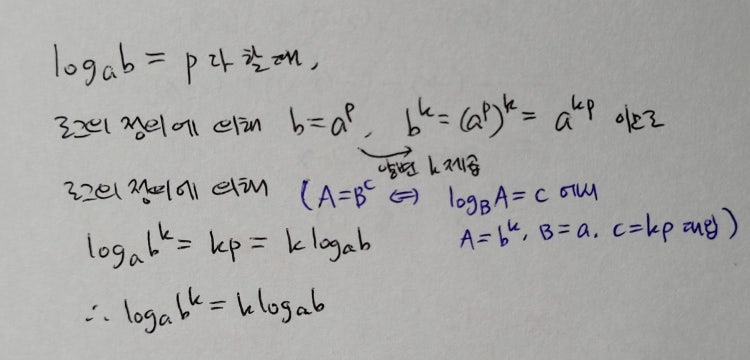 logₐb = p라 할 때,
로그의 정의에 의해 b=aᵖ, bᵏ=(aᵖ)ᵏ=aᵏᵖ 이므로
양변 k제곱
로그의 정의에 의해 (A=Bᶜ ⇔ log_B A=c 에서
logₐbᵏ = kp = k logₐb A=bᵏ, B=a, c=kp 대입)
∴ logₐbᵏ = k logₐb